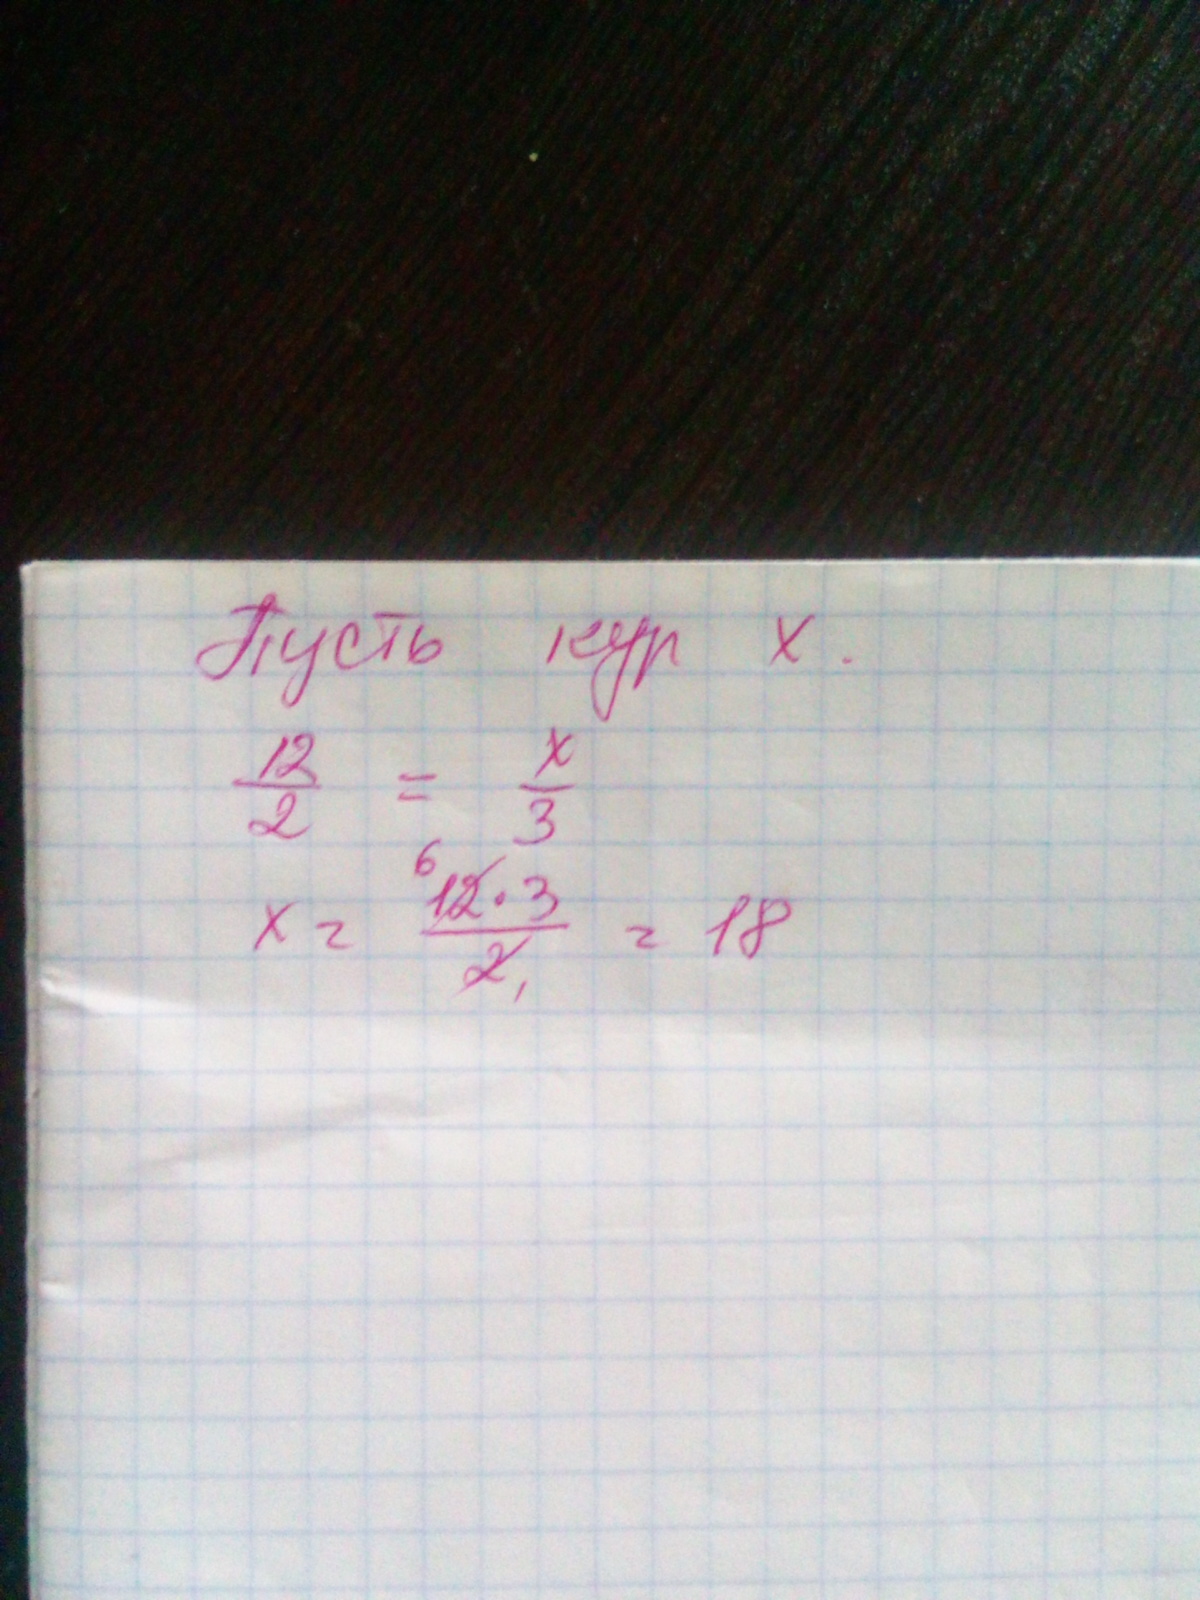 Пусть кур x.
12/2 = x/3
x = 6 12·3/2 1 = 18